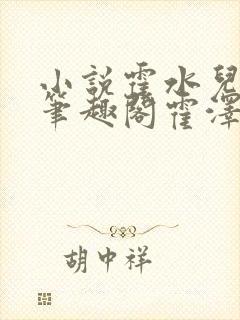 小説霍水兒
筆趣閣霍澤
胡中祥